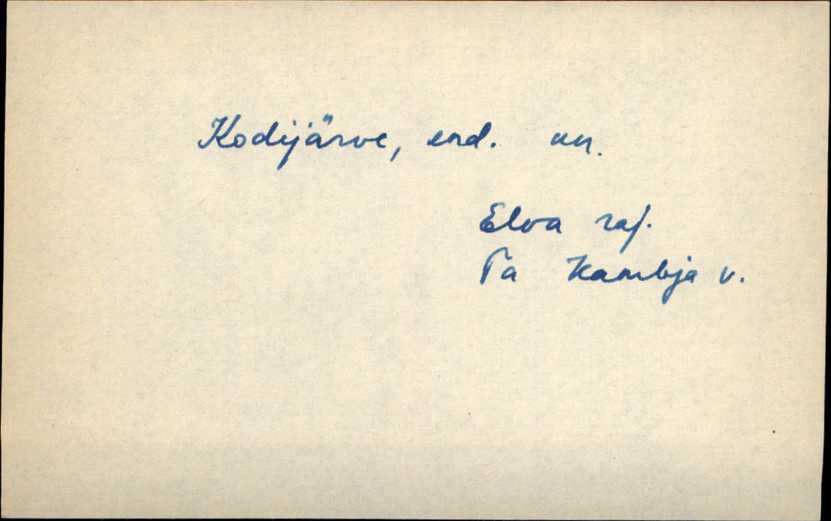 Kodijärve, end. as.
Elva raj.
Ta Kambja v.